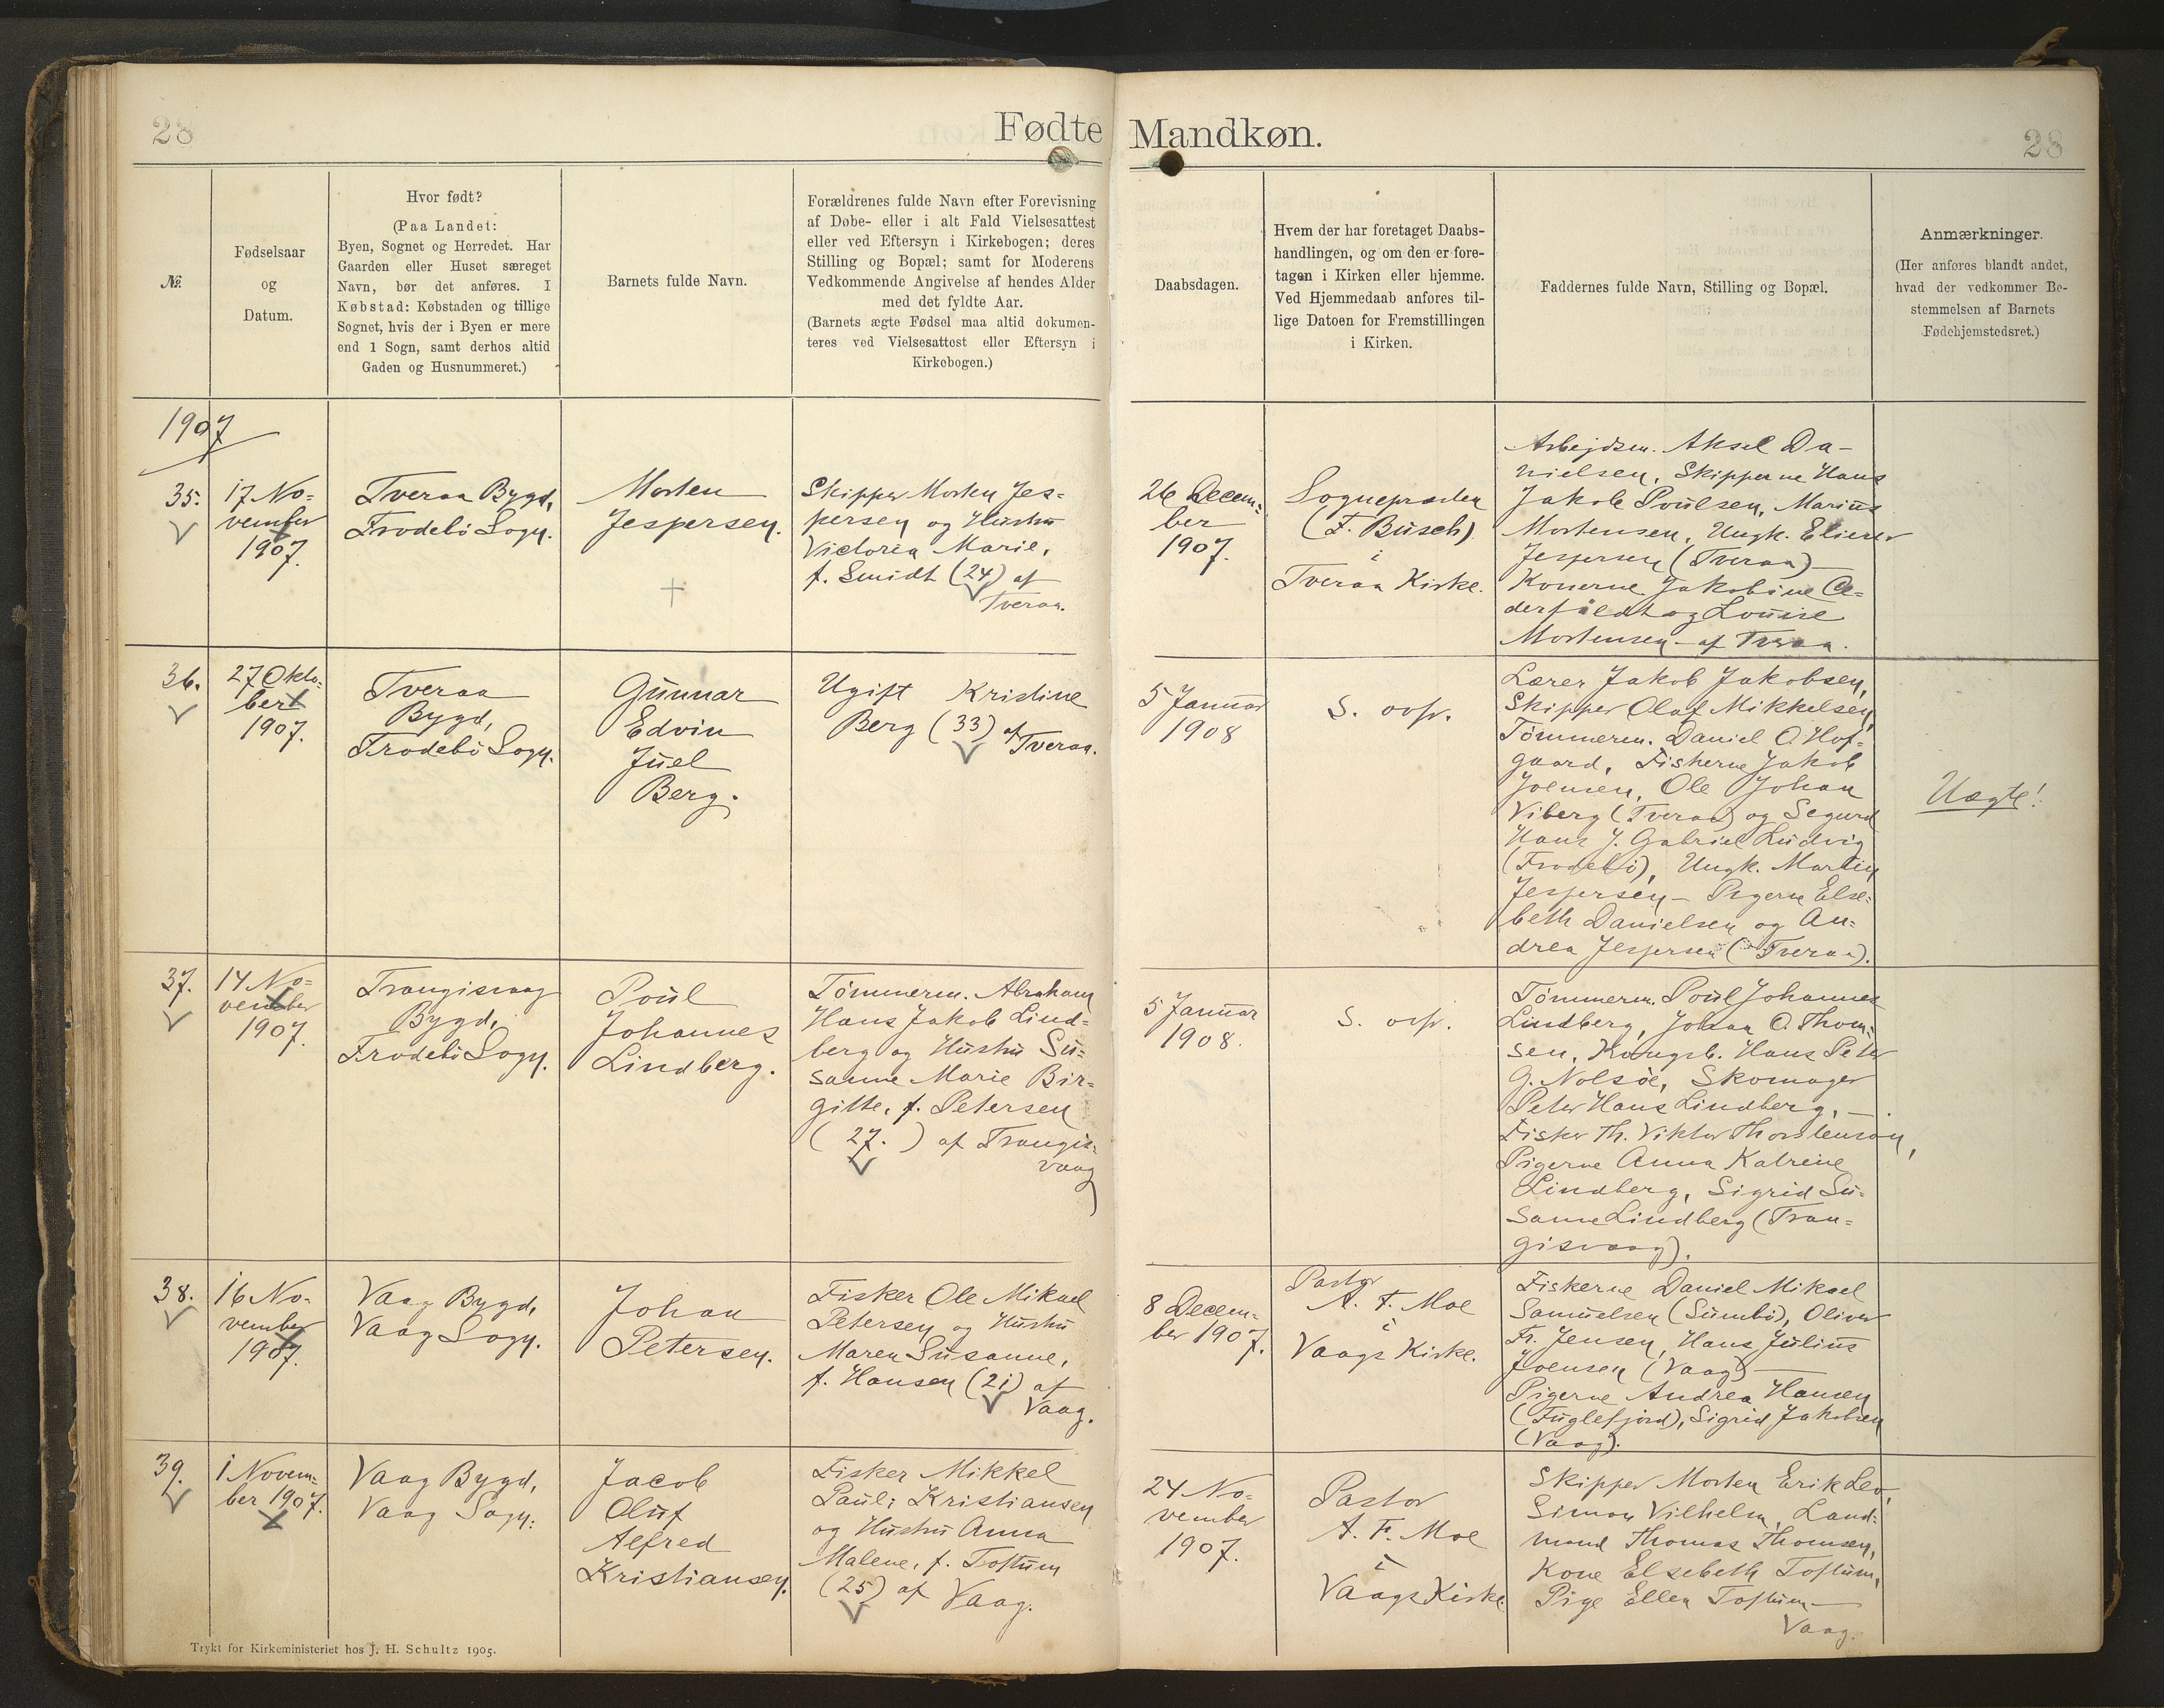 28
Fødte Mandkøn.
28
№.
Fødselsaar
og
Datum.
Hvor født?
(Paa Landet:
Byen, Sognet og Herredet. Har
Gaarden eller Huset særeget
Navn, bør det anføres. I
Købstad: Købstaden og tillige
Sognet, hvis der i Byen er mere
end 1 Sogn, samt derhos altid
Gaden og Husnummeret.)
Barnets fulde Navn.
Forældrenes fulde Navn efter Forevisning
af Døbe- eller i alt Fald Vielsesattest
eller ved Eftersyn i Kirkebogen; deres
Stilling og Bopæl; samt for Moderens
Vedkommende Angivelse af hendes Alder
med det fyldte Aar.
(Barnets ægte Fødsel maa altid dokumen-
teres ved Vielsesattest eller Eftersyn i
Kirkebogen.)
Daabsdagen.
Hvem der har foretaget Daabs-
handlingen, og om den er fore-
tagen i Kirken eller hjemme.
Ved Hjemmedaab anføres til-
lige Datoen for Fremstillingen
i Kirken.
Faddernes fulde Navn, Stilling og Bopæl.
Anmærkninger.
(Her anføres blandt andet,
hvad der vedkommer Be-
stemmelsen af Barnets
Fødehjemstedsret.)
1907
35.
17 No=
vember
1907.
Tveraa Bygd,
Frodebö Sogn.
Morten
Jespersen.
Skipper Morten Jes=
persen og Hustru
Victoria Marie,
f. Smidt (24) af
Tveraa.
26 Decem=
ber
1907.
Sognepræsten
(F. Busch)
i
Tveraa Kirke.
Arbejdsm. Aksel Da-
nielsen, Skipperne Hans
Jakob Poulsen, Marius
Mortensen, Ungk. Elieser
Jespersen (Tveraa) —
Konerne Jakobine Ce=
derfeldt og Louise
Mortensen - af Tveraa.
36.
27 Okto=
ber
1907.
Tveraa
Bygd,
Frodebö Sogn.
Gunnar
Edvin
Juel
Berg.
Ugift Kristine
Berg (33) af Tveraa.
5 Januar
1908
S. ovfr.
Lærer Jakob Jakobsen,
Skipper Olaf Mikkelsen,
Tömmerm. Daniel O. Hof=
gaard, Fiskerne Jakob
Joensen, Ole Johan
Viberg (Tveraa) og Segurd
Hans J. Gabriel Ludvig
(Frodebö), Ungk. Martin
Jespersen - Pigerne Else=
beth Danielsen og An=
drea Jespersen (Tveraa).
Uægte!
37.
14 No=
vember
1907.
Trangisvaag
Bygd,
Frodebö Sogn.
Poul
Johannes
Lindberg.
Tömmerm. Abraham
Hans Jakob Lind=
berg og Hustru Su=
sanne Marie Bir=
gitte, f. Petersen
(27.) af Trangis=
vaag
5 Januar
1908.
S. ovfr.
Tömmerm. Poul Johannes
Lindberg, Johan O. Thom=
sen, Kongsb. Hans Peter
G. Nolsöe, Skomager
Peter Hans Lindberg, —
Fisker Th. Viktor Thorstenson,
Pigerne Anna Katrine
Lindberg, Sigrid Su=
sanne Lindberg (Tran=
gisvaag).
38.
16 No-
vember
1907.
Vaag Bygd,
Vaag Sogn.
Johan
Petersen.
Fisker Ole Mikael
Petersen og Hustru
Maren Susanne,
f. Hansen (21) af
Vaag.
8 Decem-
ber 1907.
Pastor
A. F. Moe
i
Vaags Kirke.
Fiskerne Daniel Mikael
Samuelsen (Sumbö), Oliver
Fr. Jensen, Hans Julius
Joensen (Vaag) —
Pigerne Andrea Hansen
(Fuglefjord), Sigrid Jakobsen
(Vaag).
39.
1 Novem=
ber 1907.
Vaag Bygd,
Vaag Sogn.
Jacob
Oluf
Alfred
Kristiansen.
Fisker Mikkel
Pauli Kristiansen
og Hustru Anna
Malene, f. Toftum
(25) af Vaag.
24 No=
vember
1907.
Pastor
A. F. Moe
i
Vaags Kirke
Skipper Morten Erik Leo,
Simon Vilhelm, Land=
mand Thomas Thomsen,
Kone Elsebeth Toftum,
Pige Ellen Toftum —
Vaag.
Trykt for Kirkeministeriet hos J. H. Schultz 1905.